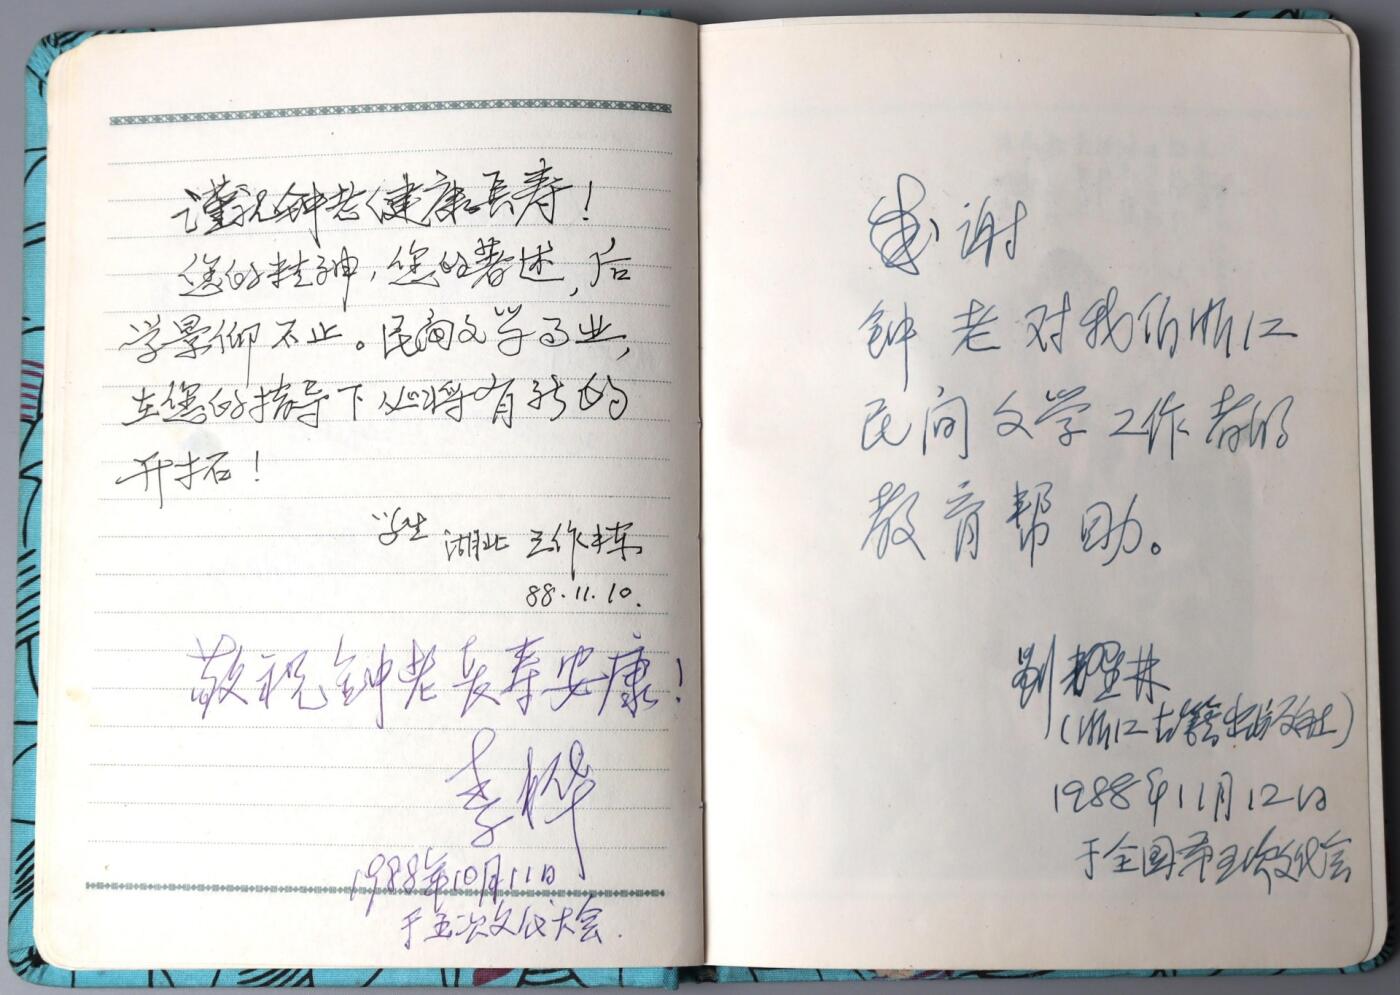 谨祝钟老健康长寿！
您的精神，您的著述，后
学景仰不止。民间文学事业，
在您的指导下必将有新的
开拓！
学生 湖北 王作栋
88.11.10.
敬祝钟老长寿安康！
李桦
1988年10月11日
于五次文代大会.
感谢
钟老对我们浙江
民间文学工作者的
教育帮助。
刘耀林
(浙江古籍出版社)
1988年11月12日
于全国第五次文代会